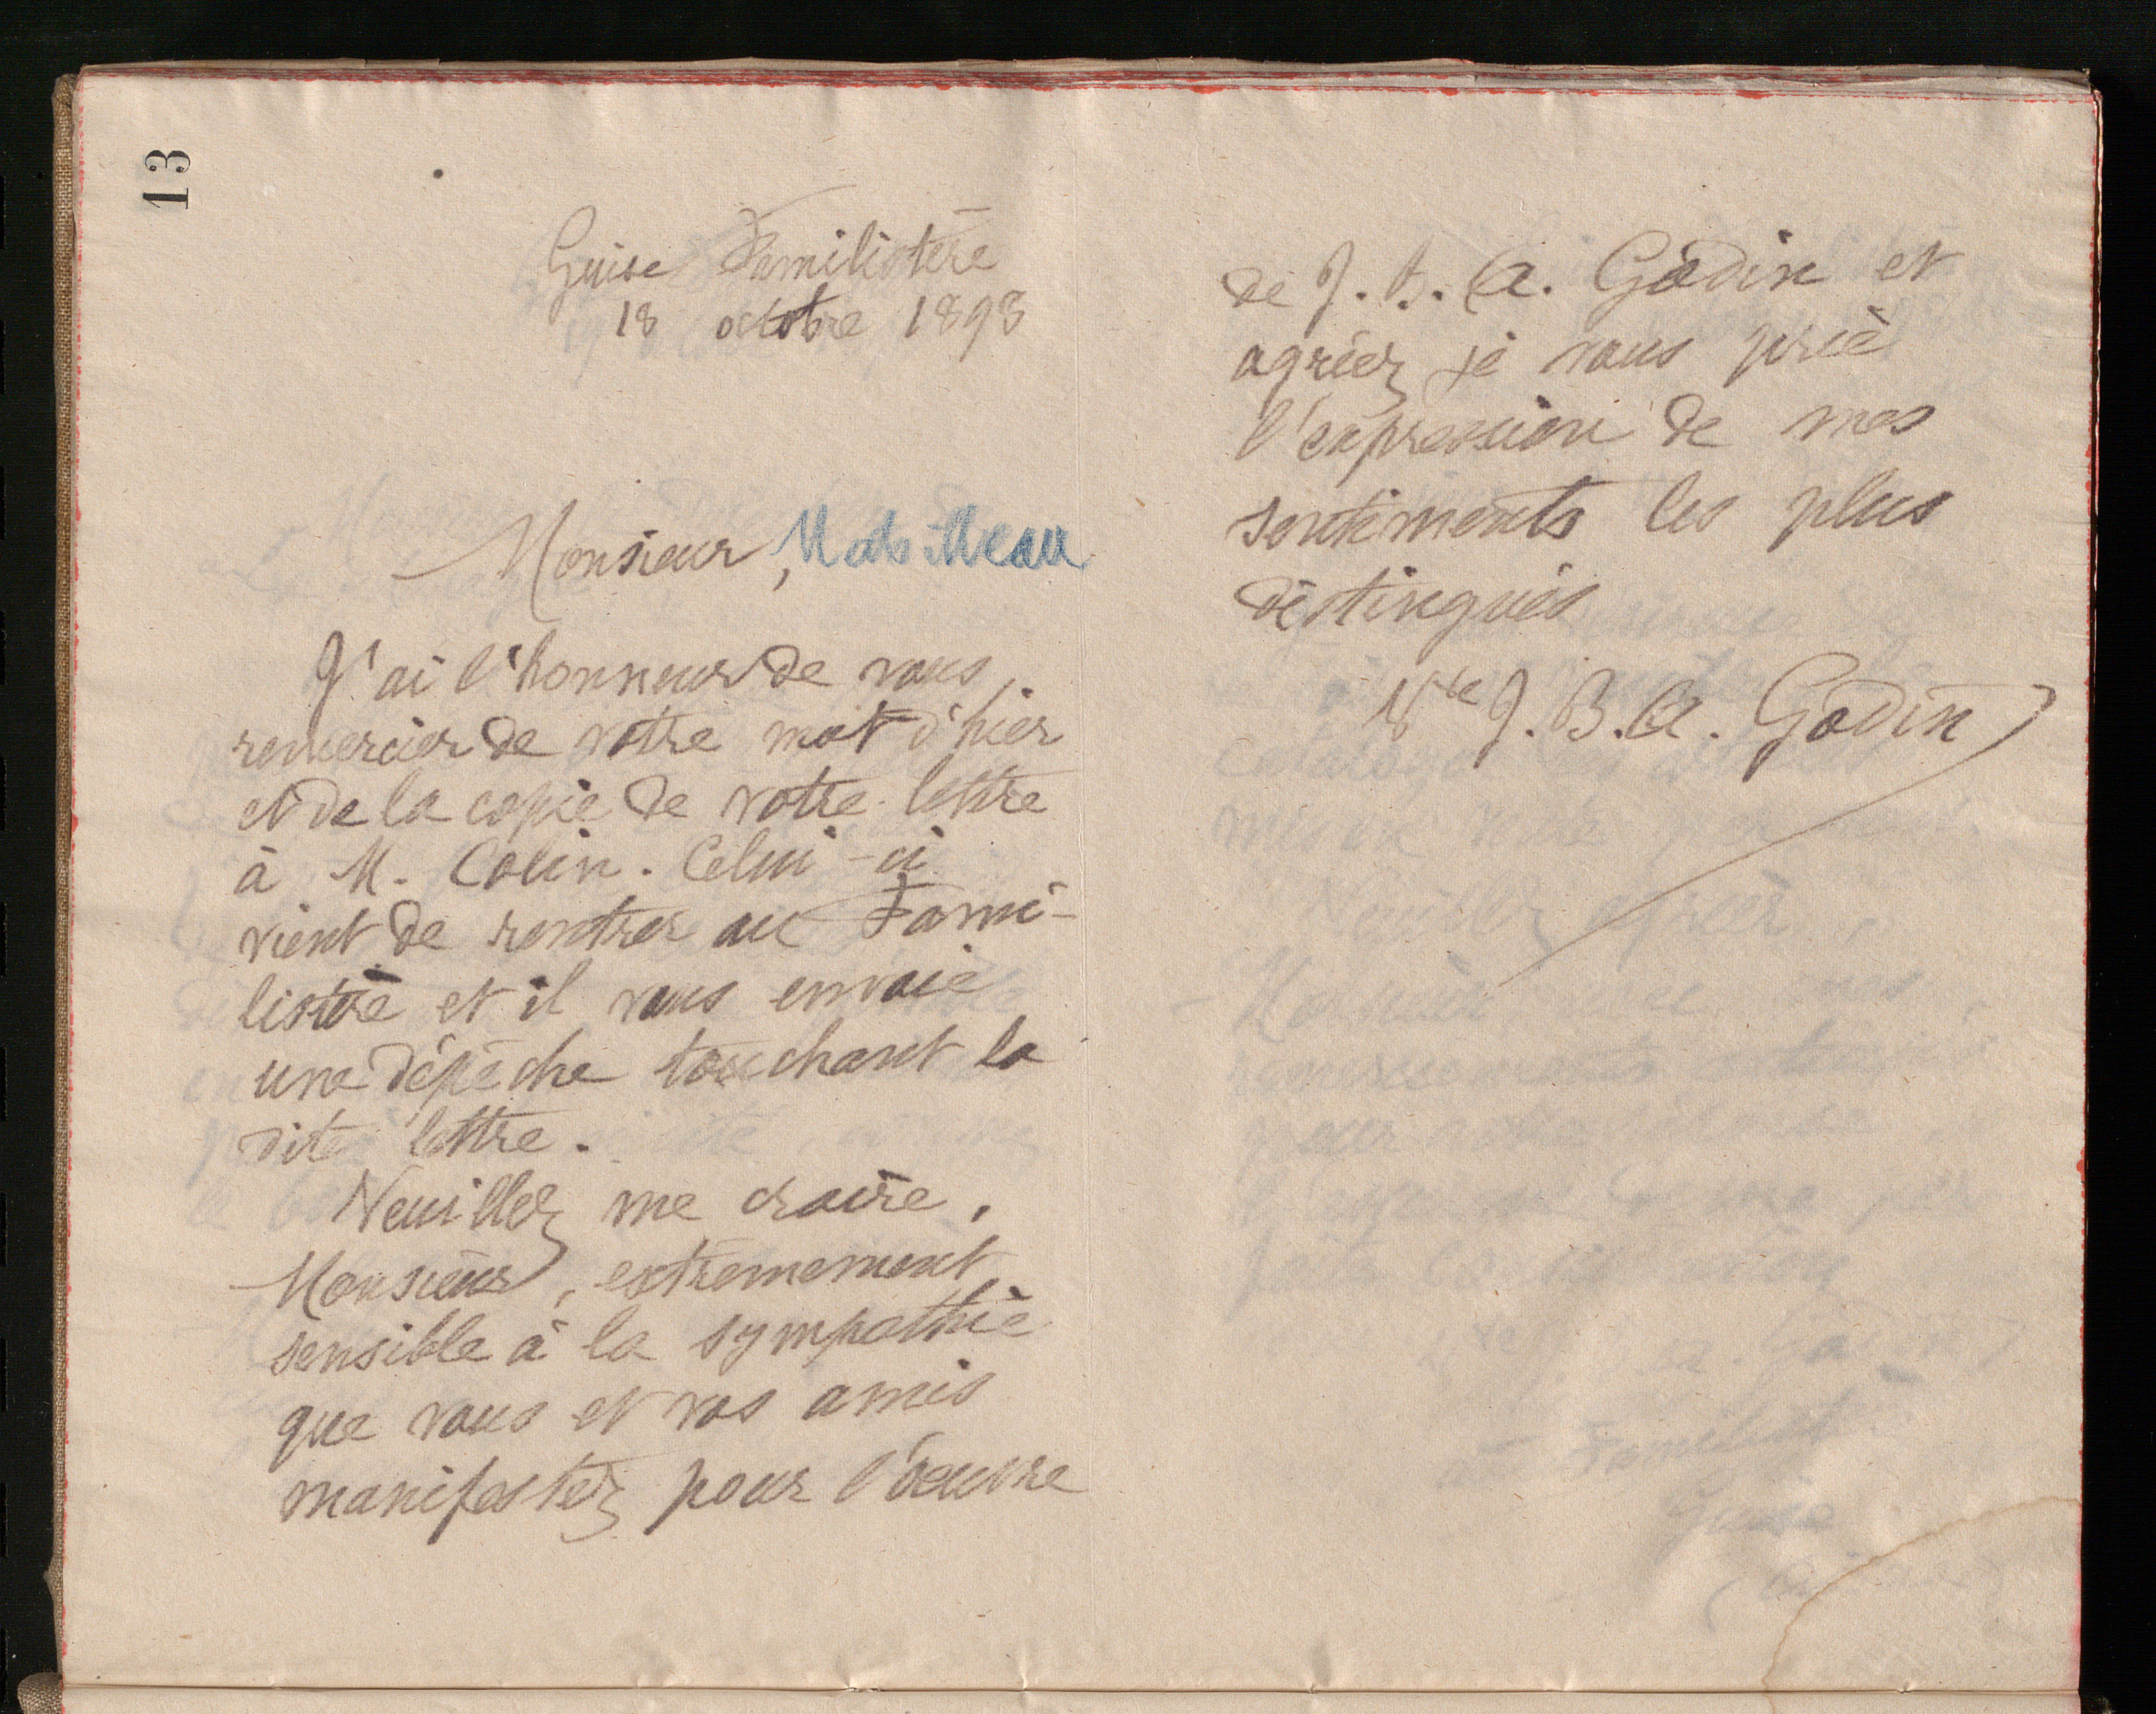 13
Guise Familistère
18 octobre 1898
Monsieur, Mabilleau
J'ai l'honneur de vous
remercier de votre mot d'hier
et de la copie de votre lettre
à M. Colin. Celui-ci
vient de rentrer au Fami-
listère et il vous envoie
une dépêche touchant la
dite lettre.
Veuillez me croire,
Monsieur, extrêmement
sensible à la sympathie
que vous et vos amis
manifestez pour l'œuvre
de J. B. A. Godin et
agréez je vous prie
l'expression de mes
sentiments les plus
distingués
Vve J. B. A. Godin